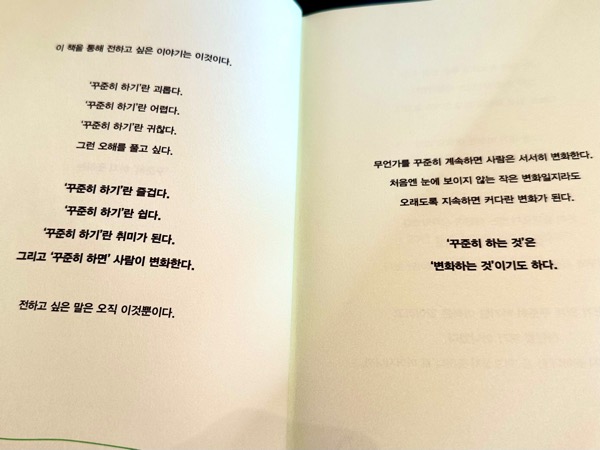 이 책을 통해 전하고 싶은 이야기는 이것이다.
'꾸준히 하기'란 괴롭다.
'꾸준히 하기'란 어렵다.
'꾸준히 하기'란 귀찮다.
그런 오해를 풀고 싶다.
'꾸준히 하기'란 즐겁다.
'꾸준히 하기'란 쉽다.
'꾸준히 하기'란 취미가 된다.
그리고 '꾸준히 하면' 사람이 변화한다.
전하고 싶은 말은 오직 이것뿐이다.
무언가를 꾸준히 계속하면 사람은 서서히 변화한다.
처음엔 눈에 보이지 않는 작은 변화일지라도
오래도록 지속하면 커다란 변화가 된다.
'꾸준히 하는 것'은
'변화하는 것'이기도 하다.